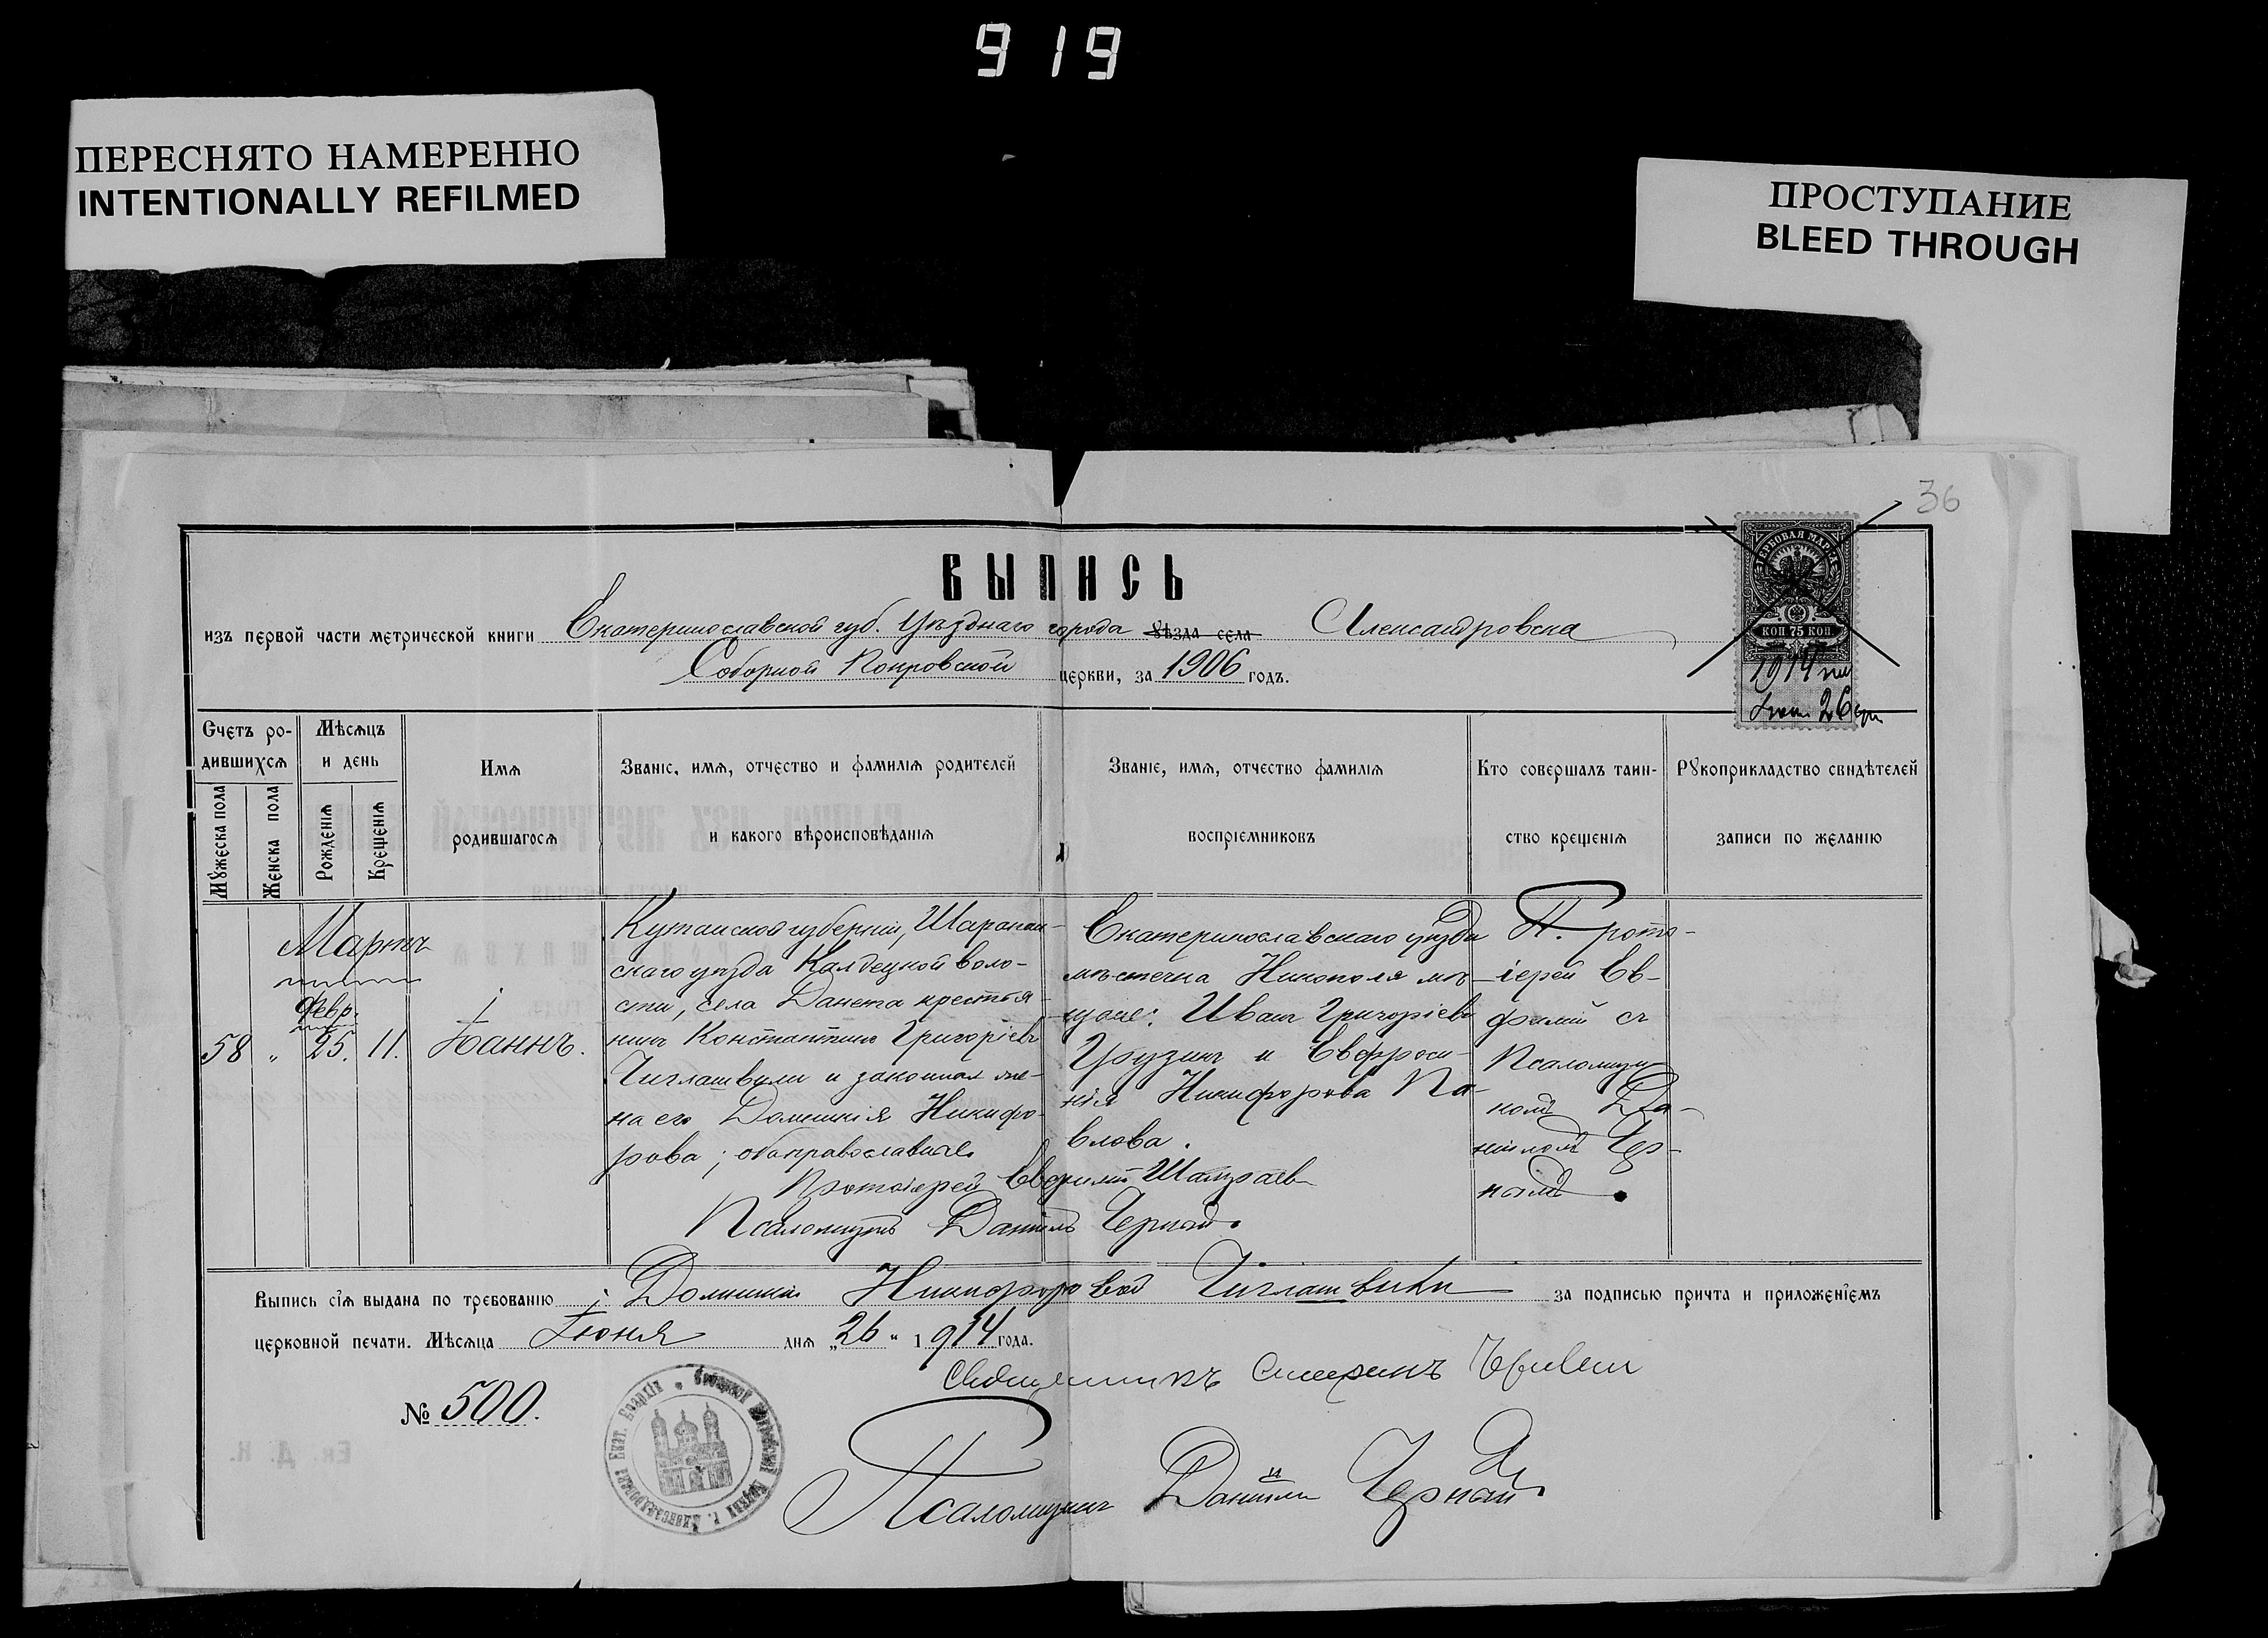 919
ПЕРЕСНЯТО НАМЕРЕННО
INTENTIONALLY REFILMED
ПРОСТУПАНИЕ
BLEED THROUGH
36
ВЫПИСЬ
ГЕРБОВАЯ МАРКА
КОП 75 КОП
1914
26
изъ первой части метрической книги Екатеринославской губ. Уѣзднаго города уѣзда села Александровска
Соборной Покровской церкви, за 1906 годъ.
Счетъ ро-
дившихся
Мужеска пола
Женска пола
Мѣсяцъ
и день
Рожденія
Крещенія
Имя
родившагося
Званіе, имя, отчество и фамилія родителей
и какого вѣроисповѣданія
Званіе, имя, отчество фамилія
воспріемниковъ
Кто совершалъ таин-
ство крещенія
Рукоприкладство свидѣтелей
записи по желанію
Мартъ
Февр.
58 „ 25. 11.
Іоаннъ.
Кутаиской губерніи, Шарапан-
скаго уѣзда Калдецкой воло-
сти, села Данета крестья-
нинъ Константинъ Григоріевъ
Чиглашвили и законная же-
на его Домникія Никифо-
рова; оба православные
Екатеринославскаго уѣзда
мѣстечка Никополя мѣ-
щане: Иванъ Григоріевъ
Грузинъ и Евфроси-
нія Никифорова Па-
влова.
П. прото-
іерей Ев-
фимій съ
Псаломщи-
комъ Да-
ніиломъ Чер-
нымъ.
Протоіерей Евфимій
Псаломщикъ Даніилъ Чернай.
Выпись сія выдана по требованію Домникіи Никифоровой Чиглашвили за подписью причта и приложеніемъ
церковной печати. Мѣсяца Іюня дня „26" 1914 года.
№ 500.
Соборной Покровской Церкви г. Александровска Екат. Епархіи
Священникъ Симеонъ
Псаломщикъ Даніилъ Чернай